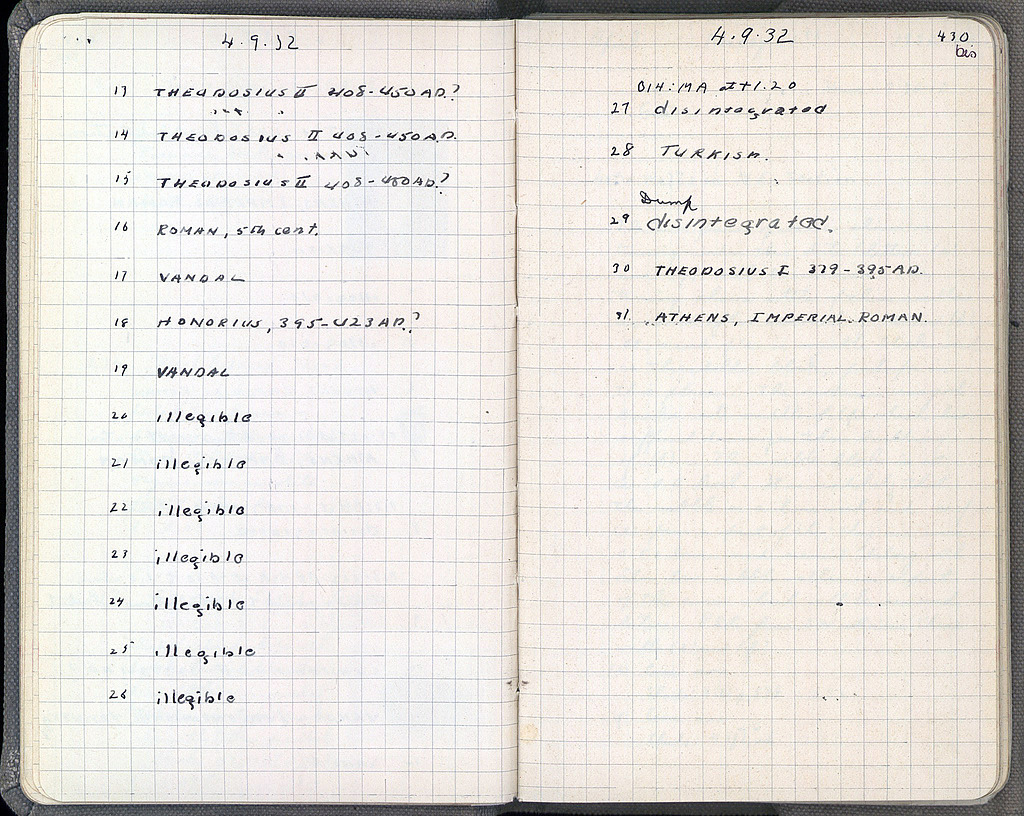 4.9.32
13 THEODOSIUS II 408-450 AD.?
14 THEODOSIUS II 408-450 AD.
15 THEODOSIUS II 408-450 AD.?
16 ROMAN, 5th cent.
17 VANDAL
18 HONORIUS, 395-423 AD.?
19 VANDAL
20 illegible
21 illegible
22 illegible
23 illegible
24 illegible
25 illegible
26 illegible
4.9.32
430
bis
014:MA at +1.20
27 disintegrated
28 TURKISH.
Dump
29 disintegrated.
30 THEODOSIUS I 379-395 AD.
31. ATHENS, IMPERIAL ROMAN.